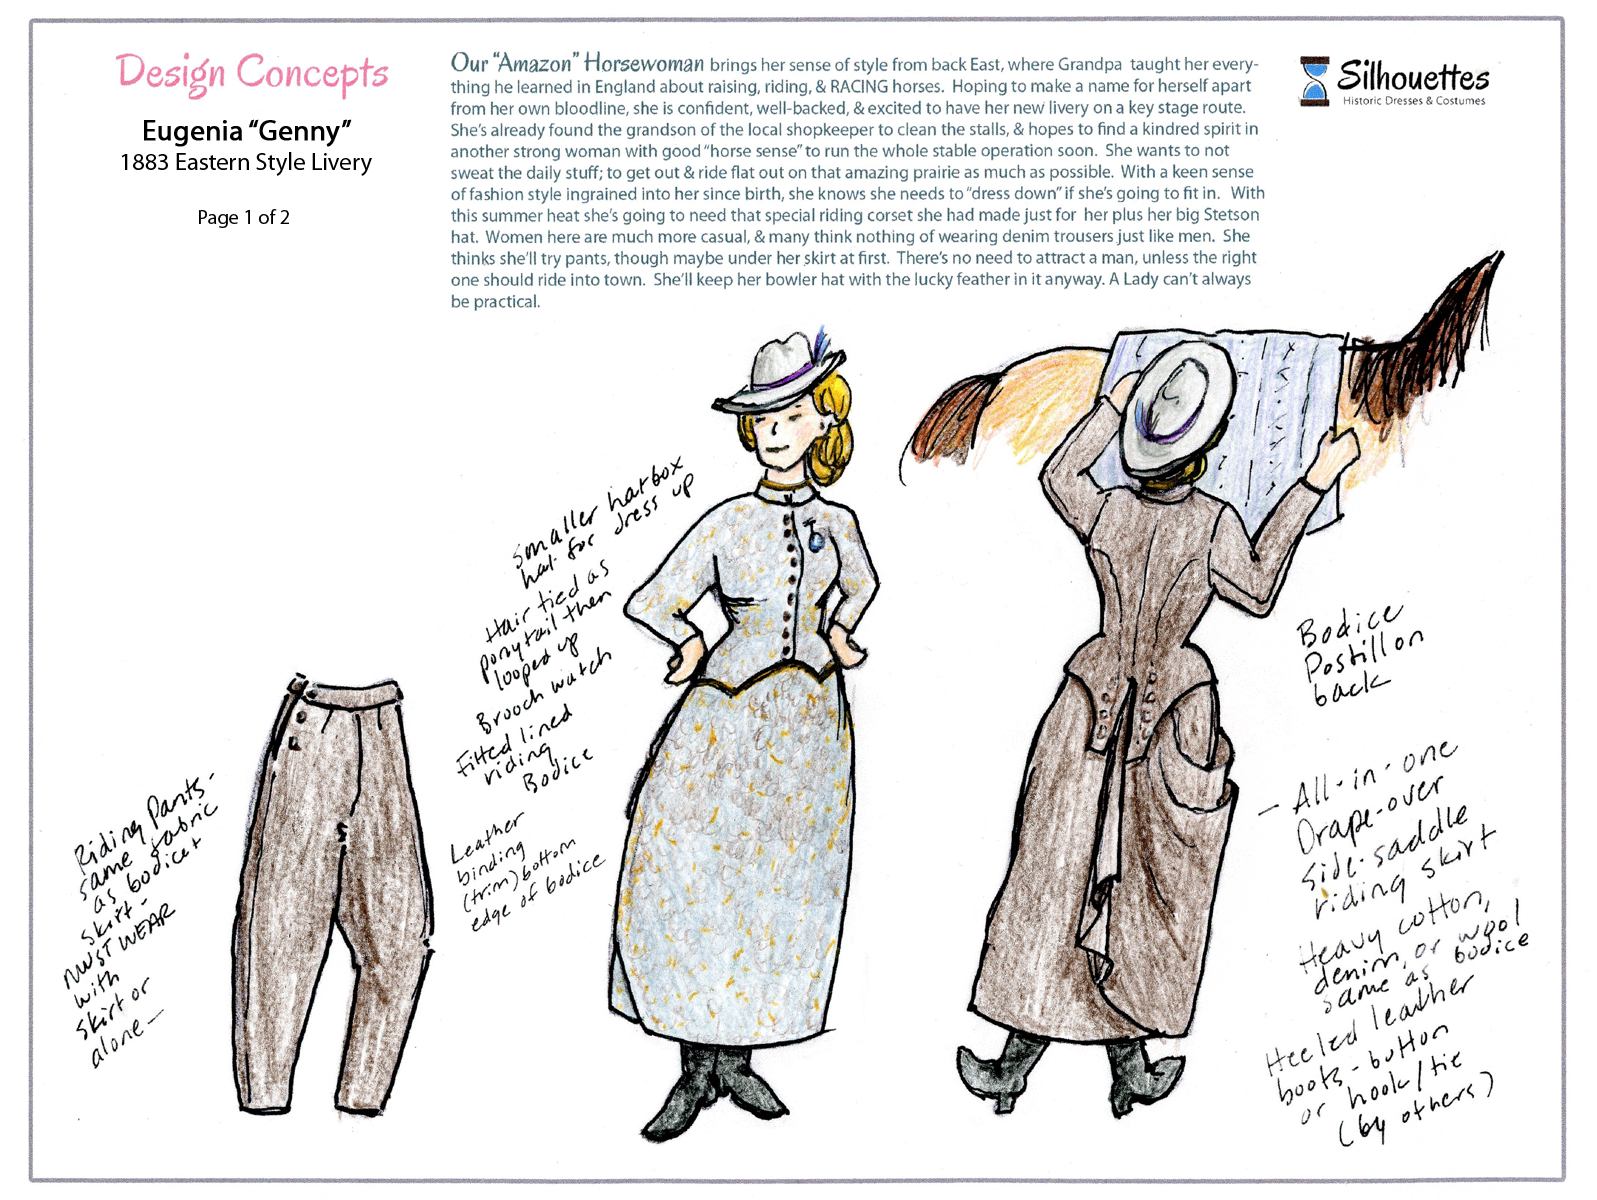 Design Concepts
Eugenia “Genny”
1883 Eastern Style Livery
Page 1 of 2
Our “Amazon” Horsewoman brings her sense of style from back East, where Grandpa taught her every-
thing he learned in England about raising, riding, & RACING horses. Hoping to make a name for herself apart
from her own bloodline, she is confident, well-backed, & excited to have her new livery on a key stage route.
She’s already found the grandson of the local shopkeeper to clean the stalls, & hopes to find a kindred spirit in
another strong woman with good “horse sense” to run the whole stable operation soon. She wants to not
sweat the daily stuff; to get out & ride flat out on that amazing prairie as much as possible. With a keen sense
of fashion style ingrained into her since birth, she knows she needs to “dress down” if she’s going to fit in. With
this summer heat she’s going to need that special riding corset she had made just for her plus her big Stetson
hat. Women here are much more casual, & many think nothing of wearing denim trousers just like men. She
thinks she’ll try pants, though maybe under her skirt at first. There’s no need to attract a man, unless the right
one should ride into town. She’ll keep her bowler hat with the lucky feather in it anyway. A Lady can’t always
be practical.
Silhouettes
Historic Dresses & Costumes
smaller hatbox
hat for dress up
Hair tied as
ponytail then
looped up
Brooch watch
Fitted lined
riding
Bodice
Leather
binding
(trim) bottom
edge of bodice
Riding Pants-
same fabric
as bodice +
skirt -
MUST WEAR
with
skirt or
alone —
Bodice
Postillon
back
— All-in-one
Drape-over
side-saddle
riding skirt
Heavy cotton,
denim, or wool
same as bodice
Heeled leather
boots - button
or hook/tie
(by others)